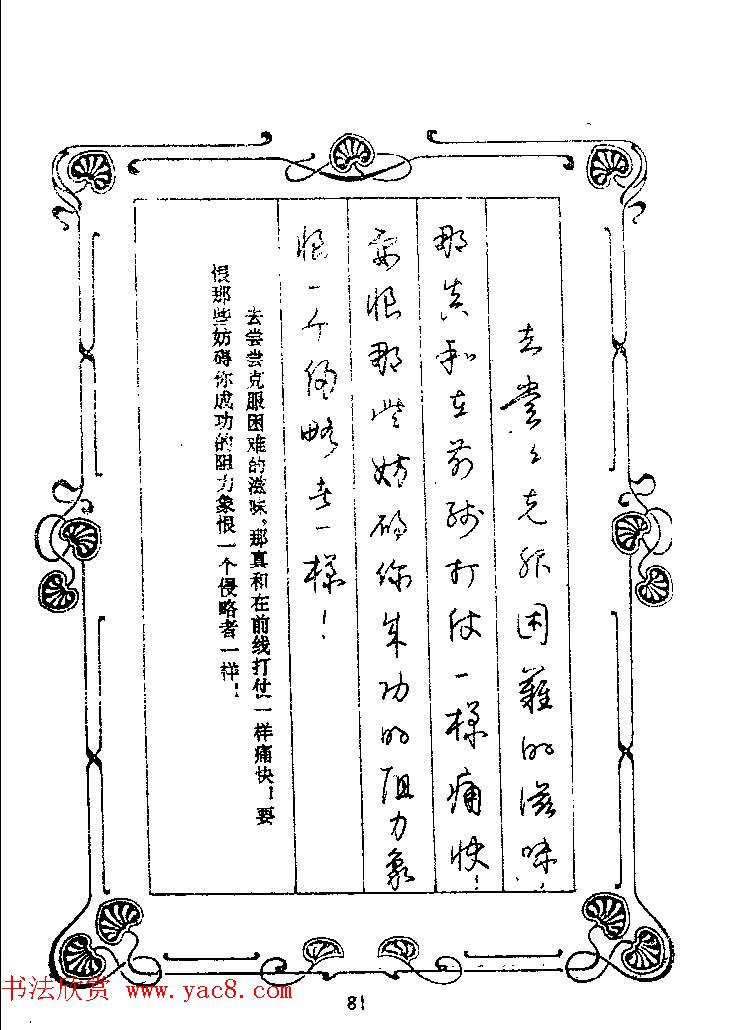 去尝々克服困難的滋味，
那真和在前线打仗一樣痛快！
要恨那些妨碍你成功的阻力象
恨一个侵略者一樣！
去尝尝克服困难的滋味，那真和在前线打仗一样痛快！要
恨那些妨碍你成功的阻力象恨一个侵略者一样！
书法欣赏 www.yac8.com
81